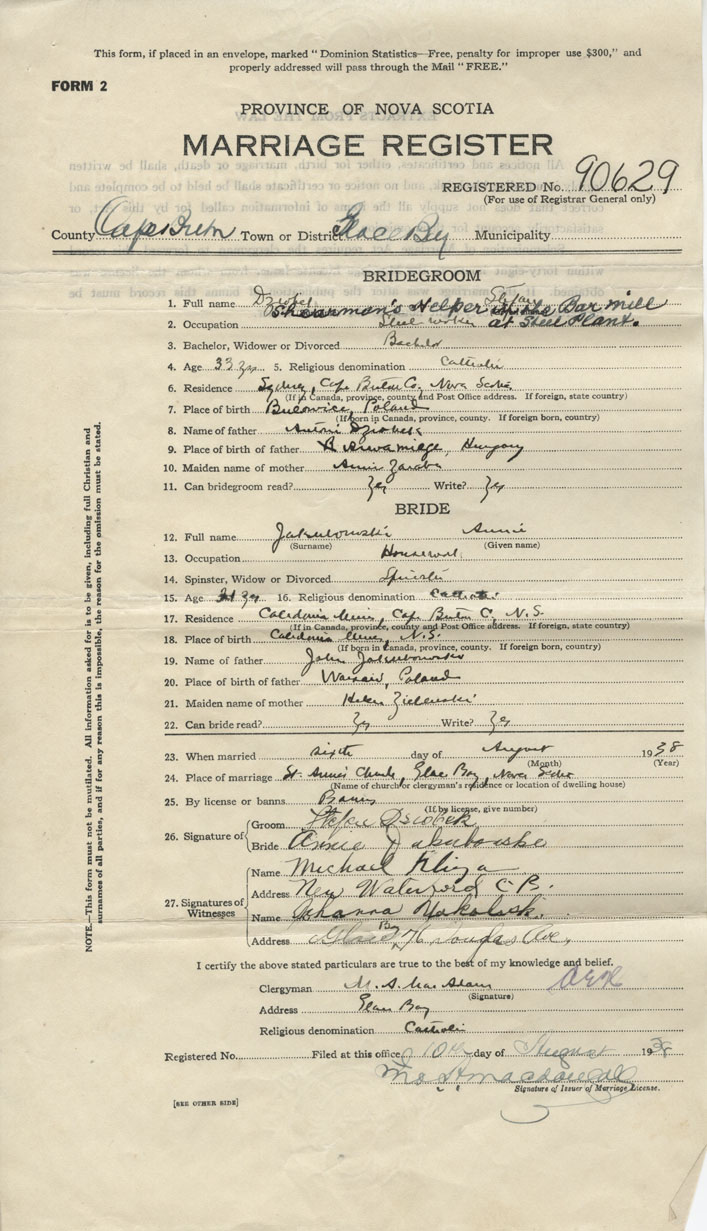 This form, if placed in an envelope, marked "Dominion Statistics—Free, penalty for improper use $300," and
properly addressed will pass through the Mail "FREE."
FORM 2
PROVINCE OF NOVA SCOTIA
MARRIAGE REGISTER
REGISTERED No. 90629
(For use of Registrar General only)
County Cape Breton Town or District Glace Bay Municipality
BRIDEGROOM
1. Full name Dziobek Stefan
Shearman's Helper at the Bar mill
2. Occupation Steel worker at Steel Plant.
3. Bachelor, Widower or Divorced Bachelor
4. Age 33 yrs 5. Religious denomination Catholic
6. Residence Sydney, Cape Breton Co, Nova Scotia
(If in Canada, province, county and Post Office address. If foreign, state country)
7. Place of birth Bulowice, Poland
(If born in Canada, province, county. If foreign born, country)
8. Name of father Antoni
9. Place of birth of father Hungary
10. Maiden name of mother Annie
11. Can bridegroom read? Yes Write? Yes
BRIDE
12. Full name Jakubowski Annie
(Surname) (Given name)
13. Occupation Housework
14. Spinster, Widow or Divorced Spinster
15. Age yrs 16. Religious denomination Catholic
17. Residence Caledonia Mines, Cape Breton C, N.S.
(If in Canada, province, county and Post Office address. If foreign, state country)
18. Place of birth Caledonia Mines, N.S.
(If born in Canada, province, county. If foreign born, country)
19. Name of father John Jakubowski
20. Place of birth of father Warsaw, Poland
21. Maiden name of mother Helen Zielenski
22. Can bride read? Yes Write? Yes
23. When married sixth day of August 1938
(Month) (Year)
24. Place of marriage St. Anne's Church, Glace Bay, Nova Scotia
(Name of church or clergyman's residence or location of dwelling house)
25. By license or banns Banns
(If by license, give number)
26. Signature of Groom Stefan Dziobek
Bride Annie Jakubowski
27. Signatures of Witnesses
Name Michael
Address New Waterford C.B.
Name Johanna
Address Glace Bay Douglas Ave,
I certify the above stated particulars are true to the best of my knowledge and belief.
Clergyman M. S. MacAdam
(Signature)
Address Glace Bay
Religious denomination Catholic
Registered No. Filed at this office 10th day of August 1938
Signature of Issuer of Marriage License.
[SEE OTHER SIDE]
NOTE.—This form must not be mutilated. All information asked for is to be given, including full Christian and
surnames of all parties, and if for any reason this is impossible, the reason for the omission must be stated.